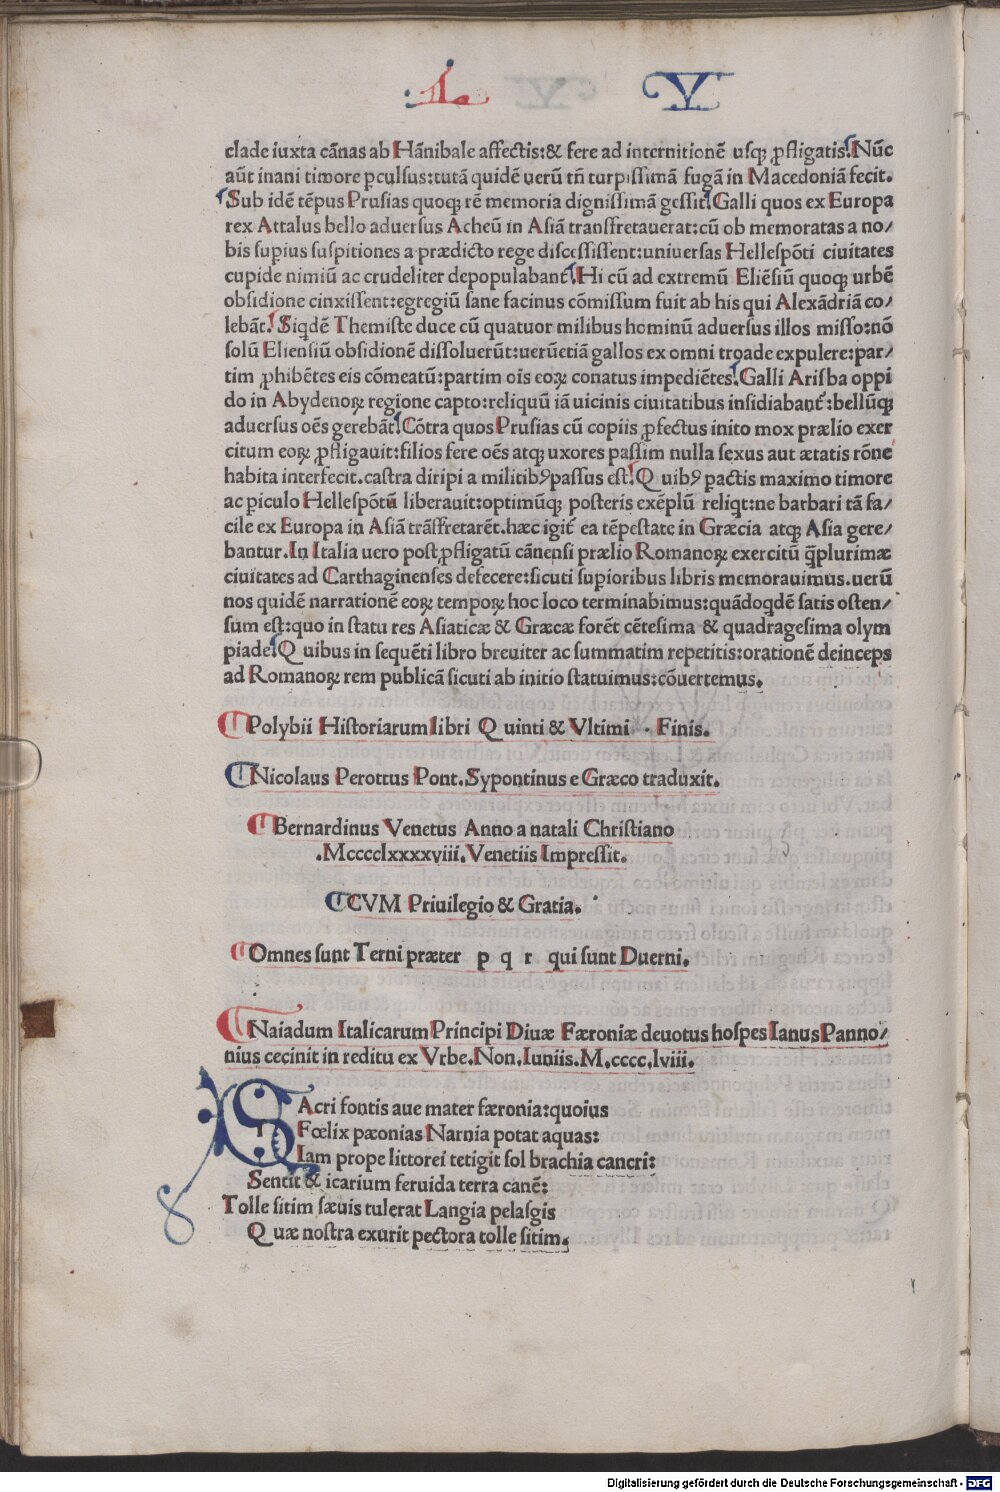 L V
clade iuxta cãnas ab Hãnibale affectis:& fere ad internitionẽ usqꝫ ꝓfligatis. Nũc
aũt inani timore ꝑculsus:tutã quidẽ uerũ tñ turpissimã fugã in Macedoniã fecit.
Sub idẽ tẽpus Prusias quoqꝫ rẽ memoria dignissimã gessit. Galli quos ex Europa
rex Attalus bello aduersus Acheũ in Asiã transfretauerat:cũ ob memoratas a no/
bis supius suspitiones a prædicto rege discessissent:uniuersas Hellespõti ciuitates
cupide nimiũ ac crudeliter depopulabant̃. Hi cũ ad extremũ Eliẽsiũ quoqꝫ urbẽ
obsidione cinxissent:egregiũ sane facinus cõmissum fuit ab his qui Alexãdriã co/
lebãt. Siqdẽ Themiste duce cũ quatuor milibus hominũ aduersus illos misso:nõ
solũ Eliensiũ obsidionẽ dissoluerũt:uerũetiã gallos ex omni troade expulere:par/
tim ꝓhibẽtes eis cõmeatũ:partim oĩs eoꝝ conatus impediẽtes. Galli Arisba oppi
do in Abydenoꝝ regione capto:reliquũ iã uicinis ciuitatibus insidiabant̃:bellũqꝫ
aduersus oẽs gerebãt. Cõtra quos Prusias cũ copiis ꝓfectus inito mox prælio exer
citum eoꝝ ꝓfligauit:filios fere oẽs atqꝫ uxores passim nulla sexus aut ætatis rõne
habita interfecit.castra diripi a militibꝰ passus est. Q uibꝰ pactis maximo timore
ac piculo Hellespõtũ liberauit:optimũqꝫ posteris exẽplũ reliqt:ne barbari tã fa/
cile ex Europa in Asiã trãsfretarẽt.hæc igit̃ ea tẽpestate in Græcia atqꝫ Asia gere/
bantur. In Italia uero post ꝓfligatũ cãnensi prælio Romanoꝝ exercitũ q̃plurimæ
ciuitates ad Carthaginenses defecere:sicuti supioribus libris memorauimus.uerũ
nos quidẽ narrationẽ eoꝝ tempoꝝ hoc loco terminabimus:quãdoqdẽ satis osten/
sum est:quo in statu res Asiaticæ & Græcæ forẽt cẽtesima & quadragesima olym
piade. Q uibus in sequẽti libro breuiter ac summatim repetitis:orationẽ deinceps
ad Romanoꝝ rem publicã sicuti ab initio statuimus:cõuertemus.
Polybii Historiarum libri Q uinti & Vltimi · Finis.
Nicolaus Perottus Pont. Sypontinus e Græco traduxit.
Bernardinus Venetus Anno a natali Christiano
.Mcccclxxxxviii. Venetiis Impressit.
CVM Priuilegio & Gratia.
Omnes sunt Terni præter p q r qui sunt Duerni.
Naiadum Italicarum Principi Diuæ Færoniæ deuotus hospes Ianus Panno/
nius cecinit in reditu ex Vrbe. Non. Iuniis. M.cccc.lviii.
SAcri fontis aue mater færonia:quoius
Fœlix pæonias Narnia potat aquas:
Iam prope littorei tetigit sol brachia cancri:
Sentit & icarium feruida terra canẽ:
Tolle sitim sæuis tulerat Langia pelasgis
Q uæ nostra exurit pectora tolle sitim.
Digitalisierung gefördert durch die Deutsche Forschungsgemeinschaft - DFG